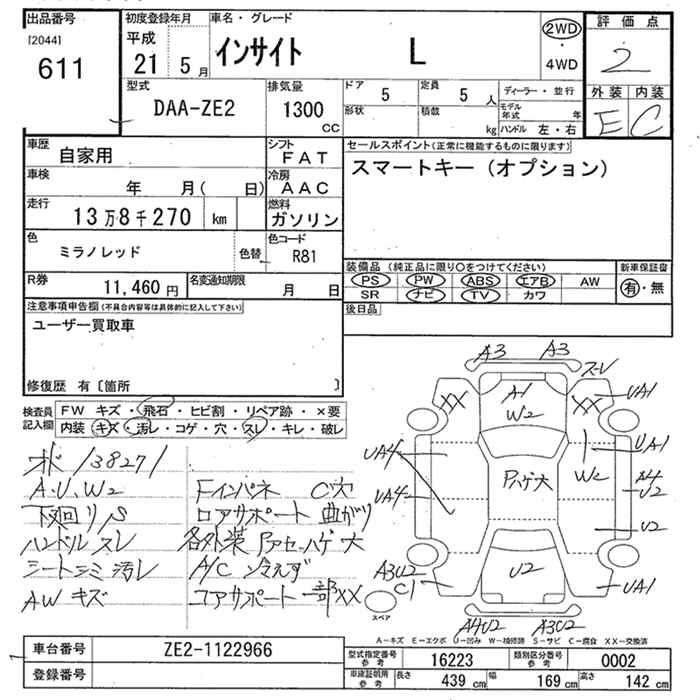 出品番号
[2044]
611
初度登録年月
平成
21 5 月
車名・グレード
インサイト L
2WD
・
4WD
評価点
2
外装 内装
E C
型式
DAA-ZE2
排気量
1300
CC
ドア 5
定員 5 人
形状
積載
kg
ディーラー・並行
モデル年式 年
ハンドル 左・右
車歴
自家用
シフト
FAT
車検
年 月( 日)
冷房
AAC
走行
13万8千270 km
燃料
ガソリン
色
ミラノレッド
色替
色コード
R81
R券
11,460 円
名変通知期限
月 日
セールスポイント(正常に機能するものに限ります)
スマートキー(オプション)
装備品 (純正品に限り○をつけてください)
新車保証書
PS PW ABS エアB AW
SR ナビ TV カワ
有・無
後日品
注意事項申告欄(不具合内容等は具体的に記入して下さい)
ユーザー買取車
修復歴 有〔箇所 〕
検査員
記入欄
FW キズ・飛石・ヒビ割・リペア跡・×要
内装 キズ・汚レ・コゲ・穴・スレ・キレ・破レ
138271
A.U.W2
下廻りS
ハンドルスレ
シートシミ汚レ
AWキズ
Fインパネ C穴
ロアサポート 曲がり
各外装 Pアセ・ハゲ大
A/C 冷えず
コアサポート 一部XX
A3 A3
スレ
XX
A1
W2
XX
UA1
UA4
UA1
Pハゲ大
W2
UA4
A4
U2
U2
A3U2
C1
U2
UA1
スペア
A4U2 A3U2
A-キズ E-エクボ U-凹み W-補修跡 S-サビ C-腐食 XX-交換済
車台番号
ZE2-1122966
登録番号
型式指定番号
参考
16223
類別区分番号
参考
0002
車庫証明用
参考
長さ 439 cm
幅 169 cm
高さ 142 cm